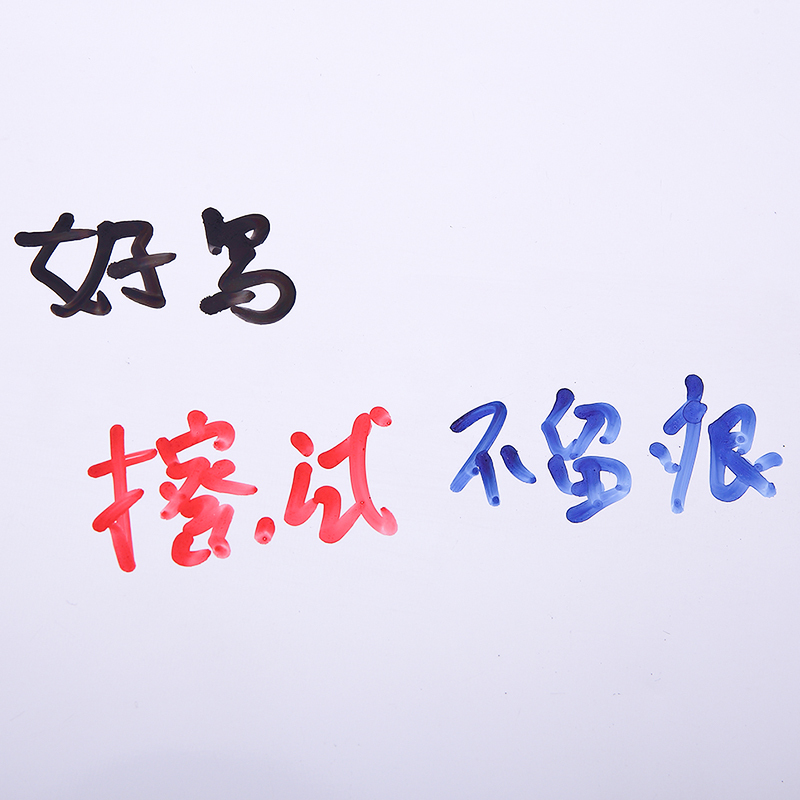 好写
擦试 不留痕